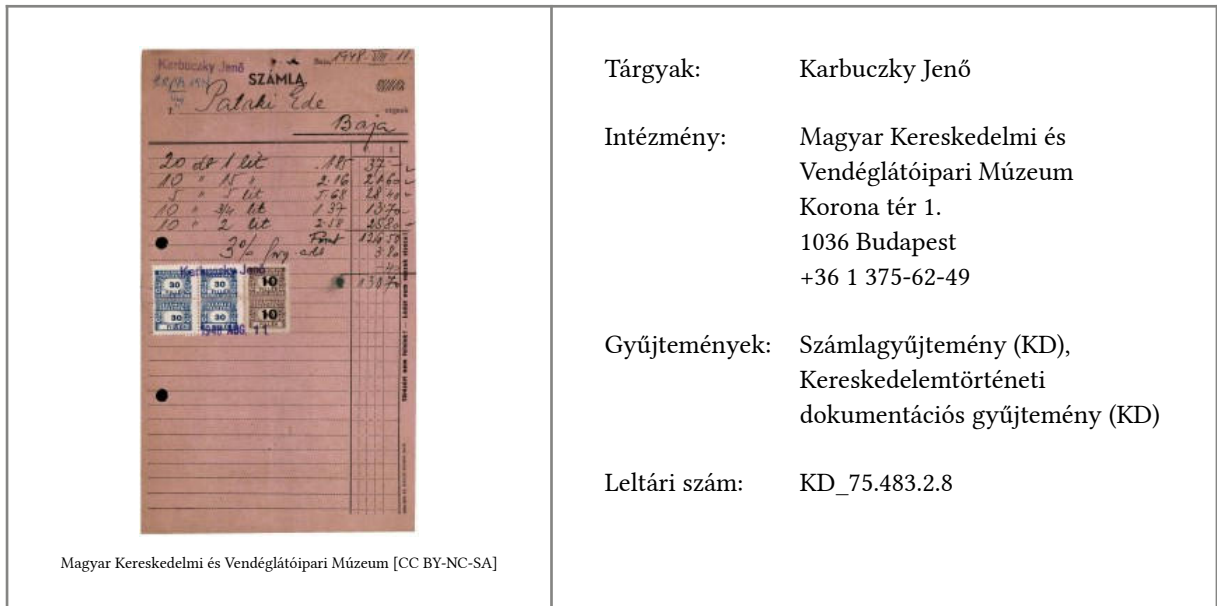 Karbuczky Jenő
Baja, 1948. VII. 11.
SZÁMLA
Pataki Ede
Baja
20 db 1 lit 1.85 37.–
10 " 15 " 2.16 21.60
5 " 5 lit 5.68 28.40
10 " 3/4 lit 1.37 13.70
10 " 2 lit 2.58 25.80
3%
Karbuczky Jenő
30 30 10
30 30 10
1948 AUG. 11
Magyar Kereskedelmi és Vendéglátóipari Múzeum [CC BY-NC-SA]
Tárgyak: Karbuczky Jenő
Intézmény: Magyar Kereskedelmi és
Vendéglátóipari Múzeum
Korona tér 1.
1036 Budapest
+36 1 375-62-49
Gyűjtemények: Számlagyűjtemény (KD),
Kereskedelemtörténeti
dokumentációs gyűjtemény (KD)
Leltári szám: KD_75.483.2.8